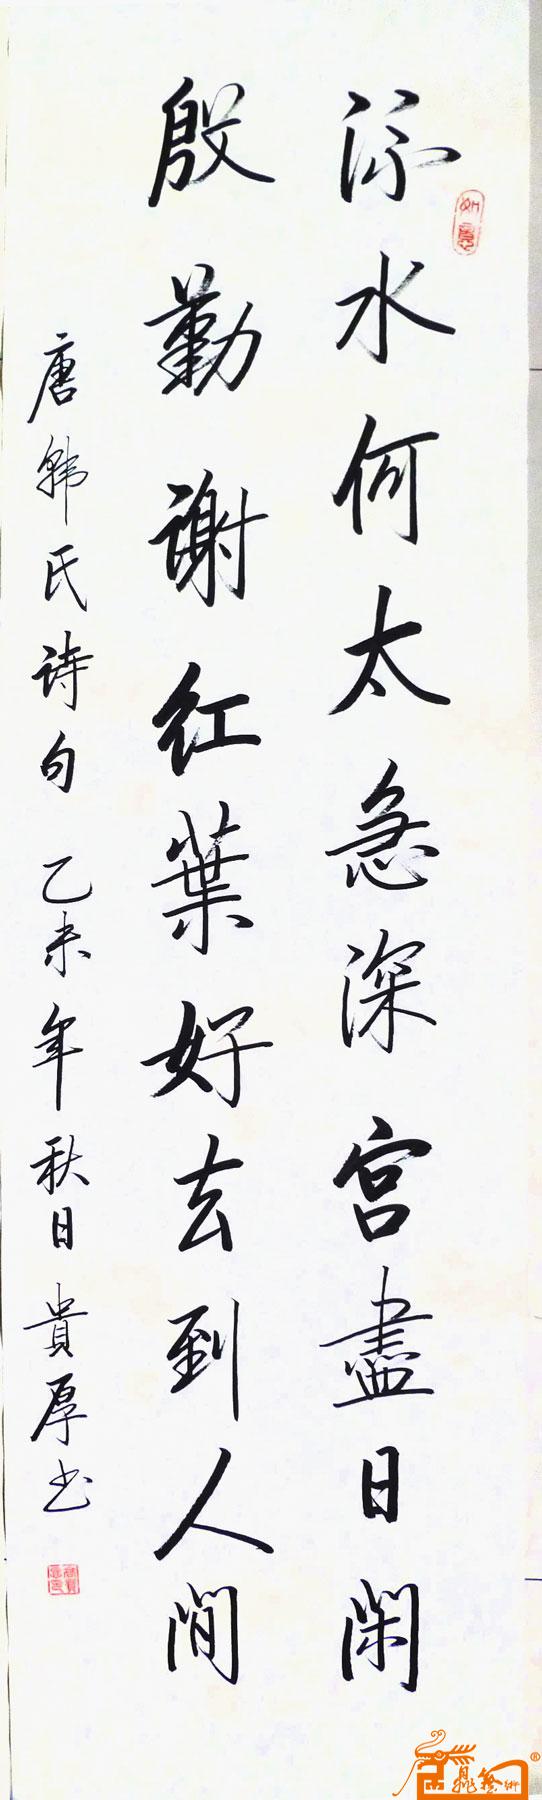 流水何太急深宮盡日閑
殷勤謝紅葉好去到人間
唐韩氏诗句 乙未年秋日 貴厚书
如意